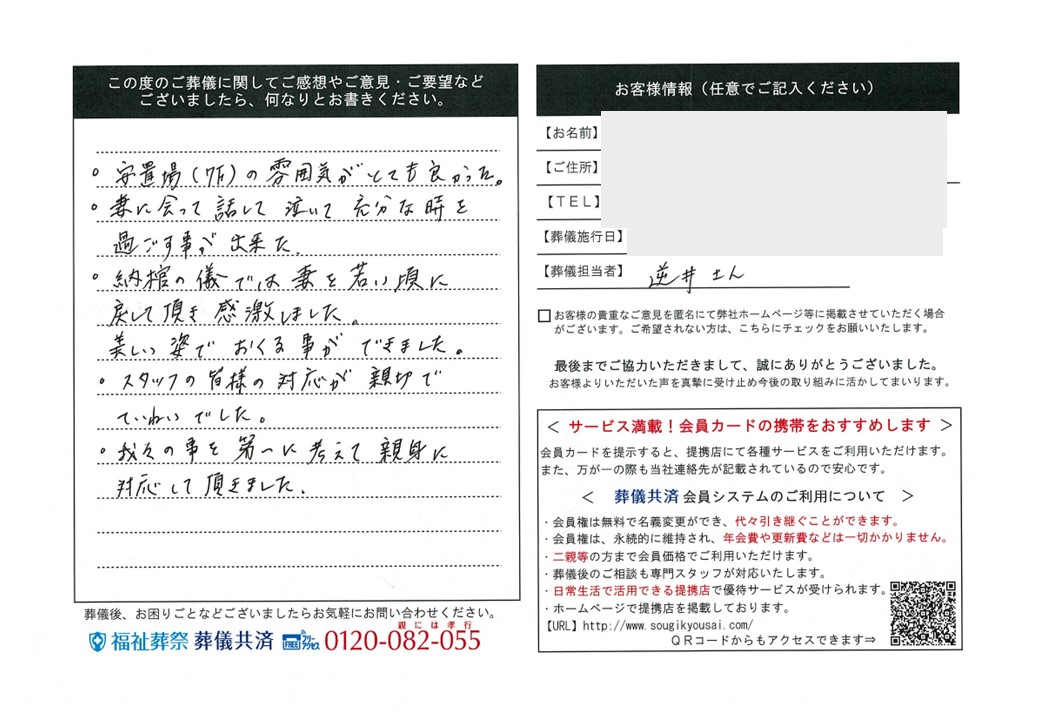 この度のご葬儀に関してご感想やご意見・ご要望など
ございましたら、何なりとお書きください。
。安置場（7F）の雰囲気がとても良かった。
。妻に会って話して泣いて充分な時を
過ごす事が出来た。
。納棺の儀では妻を若い頃に
戻して頂き感激しました。
美しい姿でおくる事ができました。
。スタッフの皆様の対応が親切で
ていねいでした。
。我々の事を第一に考えて親身に
対応して頂きました。
葬儀後、お困りごとなどございましたらお気軽にお問い合わせください。
親には孝行
福祉葬祭 葬儀共済 FREE フリーアクセス 0120-082-055
お客様情報（任意でご記入ください）
【お名前】
【ご住所】
【ＴＥＬ】
【葬儀施行日】
【葬儀担当者】 逆井さん
□お客様の貴重なご意見を匿名にて弊社ホームページ等に掲載させていただく場合
がございます。ご希望されない方は、こちらにチェックをお願いいたします。
最後までご協力いただきまして、誠にありがとうございました。
お客様よりいただいた声を真摯に受け止め今後の取り組みに活かしてまいります。
＜ サービス満載！会員カードの携帯をおすすめします ＞
会員カードを提示すると、提携店にて各種サービスをご利用いただけます。
また、万が一の際も当社連絡先が記載されているので安心です。
＜ 葬儀共済 会員システムのご利用について ＞
・会員権は無料で名義変更ができ、代々引き継ぐことができます。
・会員権は、永続的に維持され、年会費や更新費などは一切かかりません。
・二親等の方まで会員価格でご利用いただけます。
・葬儀後のご相談も専門スタッフが対応いたします。
・日常生活で活用できる提携店で優待サービスが受けられます。
・ホームページで提携店を掲載しております。
【URL】http://www.sougikyousai.com/
ＱＲコードからもアクセスできます⇒